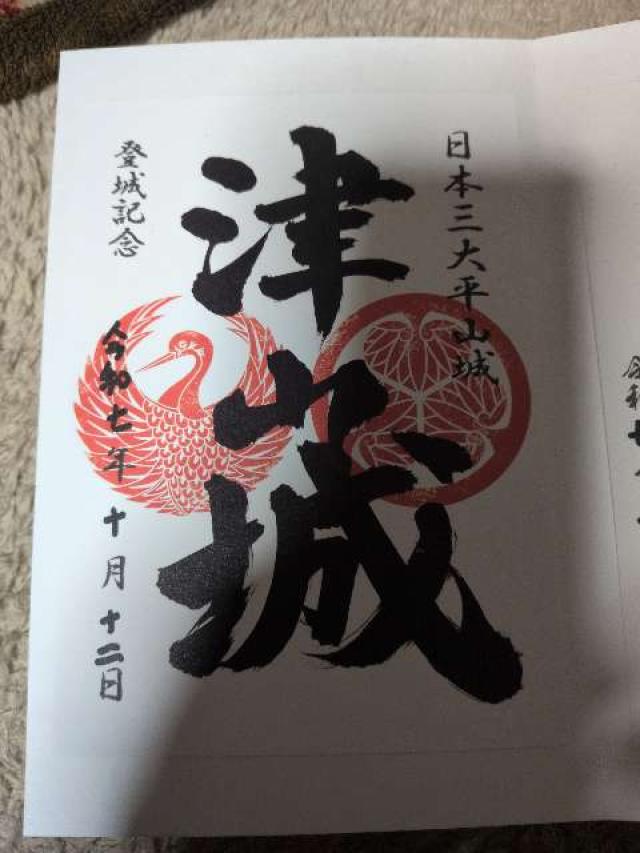 日本三大平山城
津山城
登城記念
令和七年十月十二日